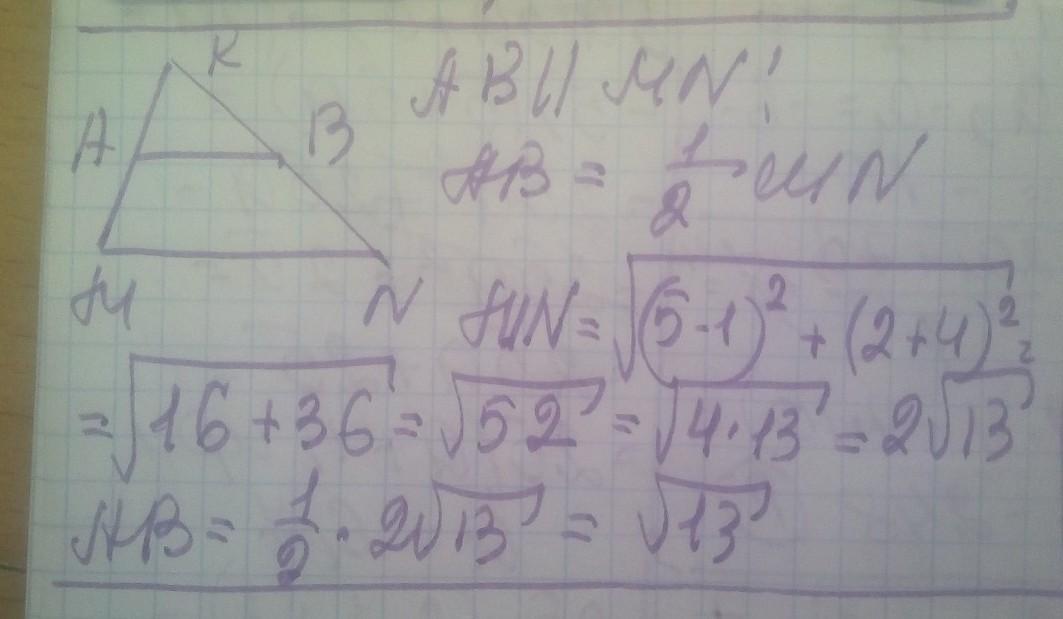 K
AB || MN;
A
B
AB = 1/2 MN
M
N
MN = √((5-1)² + (2+4)²) =
= √(16+36) = √52 = √(4·13) = 2√13
AB = 1/2 · 2√13 = √13